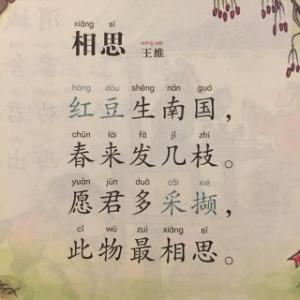 xiāng sī
相思
wáng wéi
王维
hóng dòu shēng nán guó
红豆生南国，
chūn lái fā jǐ zhī
春来发几枝。
yuàn jūn duō cǎi xié
愿君多采撷，
cǐ wù zuì xiāng sī
此物最相思。